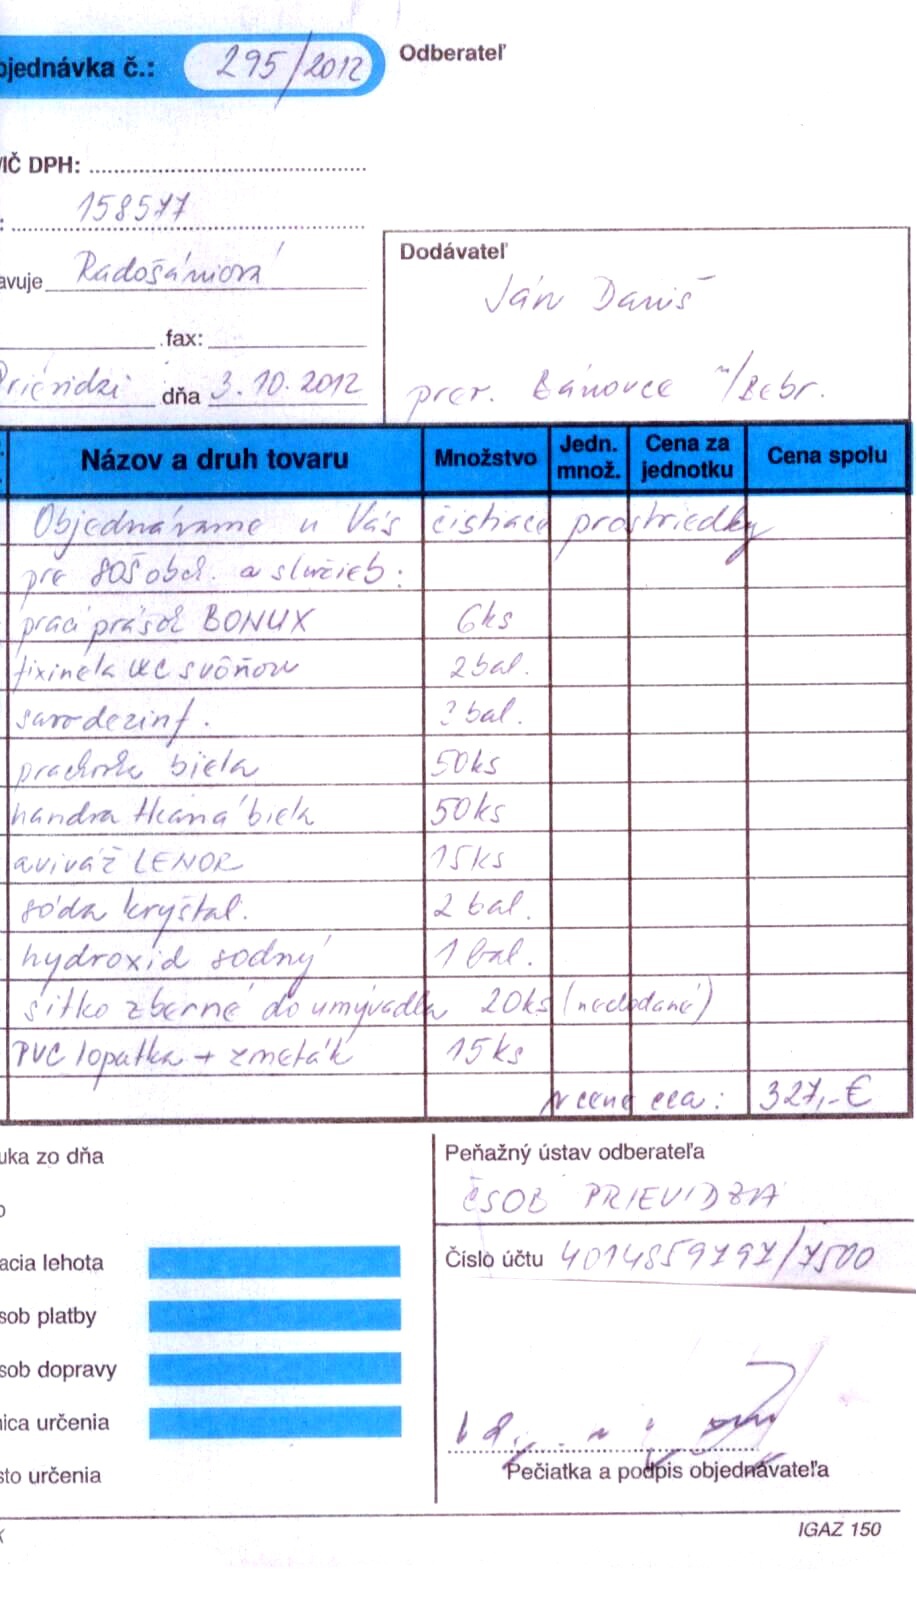 bjednávka č.: 295/2012
Odberateľ
IČ DPH:
: 158577
avuje Radošániová
fax:
Prievidzi dňa 3.10.2012
Dodávateľ
Ján Daniš
prev. Bánovce n/Bebr.
Názov a druh tovaru Množstvo Jedn. množ. Cena za jednotku Cena spolu
Objednávame u Vás čistiace prostriedky
pre SOŠ obch. a služieb:
prací prášok BONUX 6ks
fixinela WC svôňou 2bal.
savo dezinf. 3 bal.
prachovka biela 50ks
handra tkaná biela 50ks
aviváž LENOR 15ks
sóda kryštal. 2 bal.
hydroxid sodný 1 bal.
sitko zberné do umývadla 20ks (nedodané)
PVC lopatka + zmeták 15ks
v cene cca: 327,-€
uka zo dňa
o
acia lehota
sob platby
sob dopravy
nica určenia
sto určenia
Peňažný ústav odberateľa
ČSOB PRIEVIDZA
Číslo účtu 4014859797/7500
Pečiatka a podpis objednávateľa
IGAZ 150